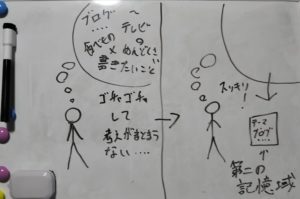 ブログ〜
....
テレビ
の
食べもの
×
めんどくさい
書きたいこと
ゴチャゴチャ
して
考えがまとまら
ない....
スッキリ!
テーマ
ブログ
....
が
第二の
記憶域